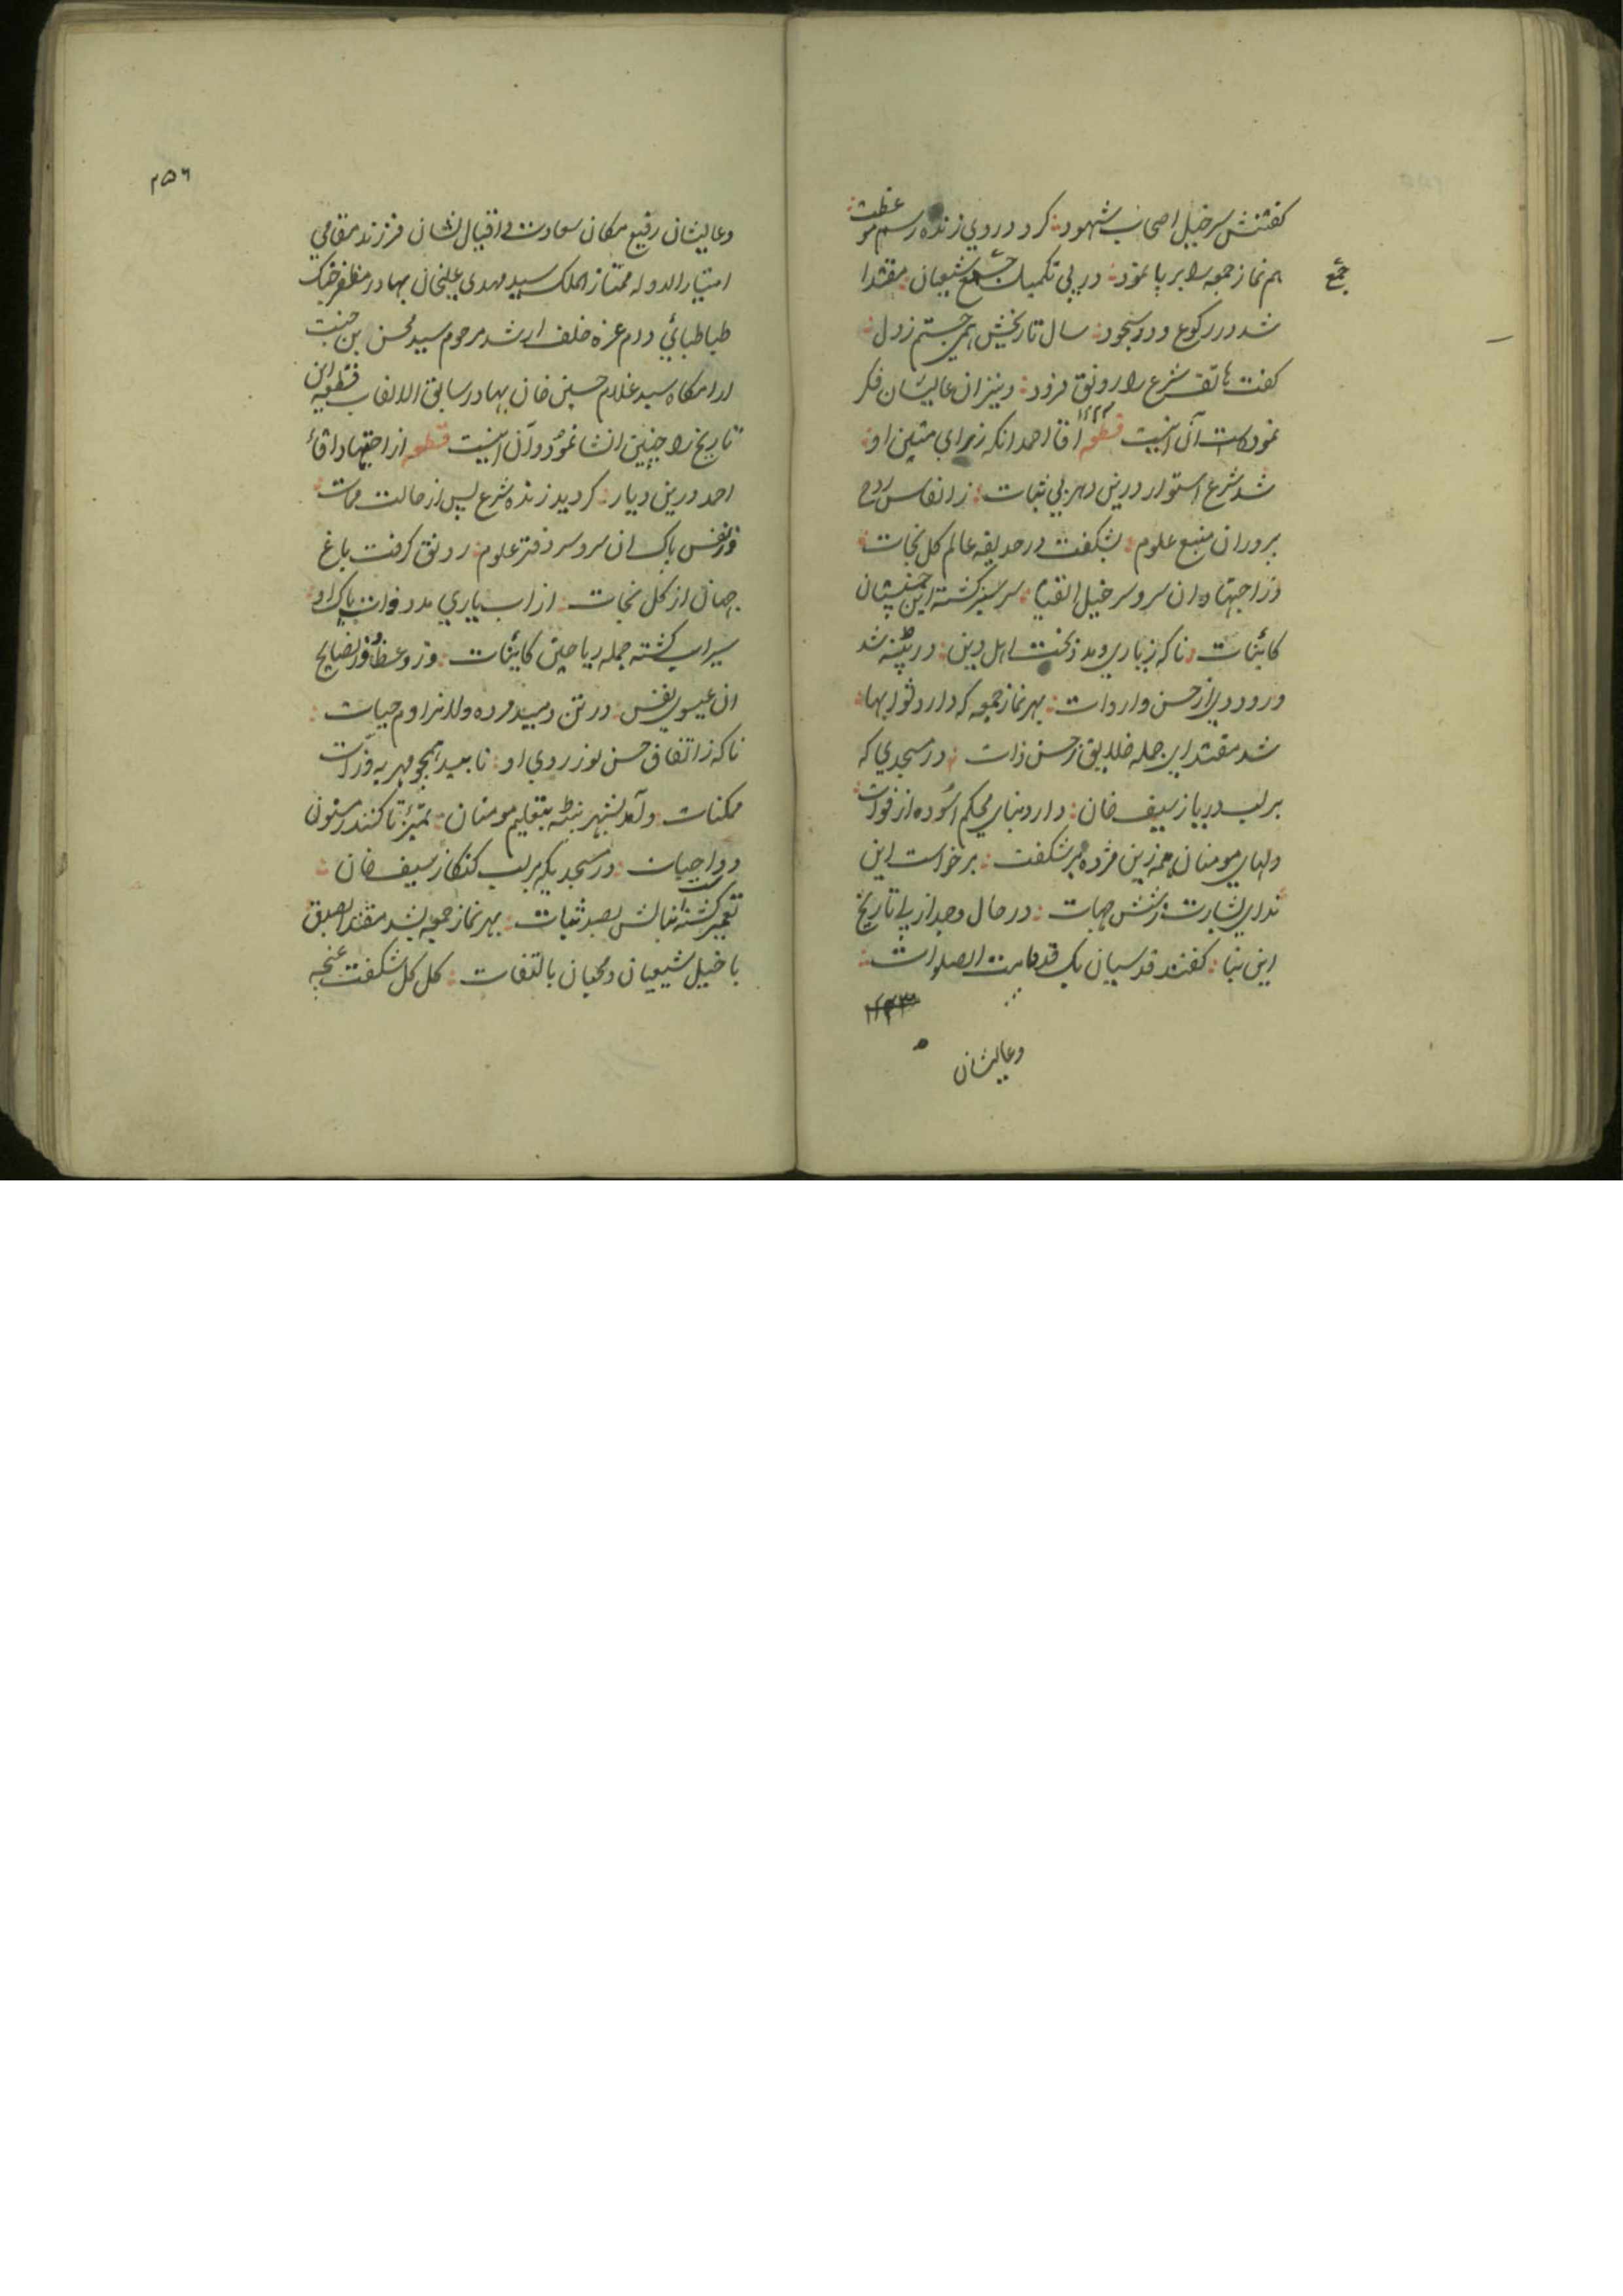 گفتنش سرخیل اصحاب شهود: کرد در روی زنده رسم موعظت
هم نماز جمعه را بر پا نمود: در پی تکمیل جمع شیعیان: مقتدا
جمع
شد در رکوع و در سجود: سال تاریخش همی جستم ز دل:
گفت هاتف شرع را رونق فزود: و نیز ان عالیشان فکر
نموده است آن اینست قطعه اقا احمد انکه ز رای متین او:
۱۲۲۳
شد شرع استوار درین دهر بی ثبات: ز انفاس روح
پرور ان منبع علوم: بشکفت در حدیقه عالم کل نجات:
وز اجتهاد ان سر و سر خیل اتقیا: سر سبز گشته این
کائنات: ناکه ز یاری مدد بخت اهل دین: در پتنه شد
ورود وی از حسن واردات: بهر نماز جمعه که دارد ثوابها:
شد مقتدای جمله خلایق ز حسن ذات: در مسجدی که
بر لب دریا ز سیف خان: دارد بنای محکم
دلهای مومنان همه زین مژده بر شکفت: برخواست این
ندای بشارت ز شش جهات: در حال وجد از پی تاریخ
این بنا: گفتند قدسیان بک قد قامت الصلوات:
۱۲۲۳
وعالیشان
۲۵۶
وعالیشان رفیع مکان سعادت و اقبال نشان فرزند مقامی
امتیاز الدوله ممتاز الملک سید مهدی علیخان بهادر مظفر جنک
طباطبائی دام عزه خلف ارشد مرحوم سید محسن بن جنت
ارامکاه سید غلام حسین خان بهادر سابق الالقاب قطعه این
تاریخ را چنین انشا نموده و آن اینست قطعه از اجتهاد اقا
احمد درین دیار: کردید زنده شرع پس از حالت ممات:
وز نفس پاک ان سر و سر دفتر علوم: رونق کرفت باغ
جهان از کل نجات: از اب یاری مدد ذات پاک او:
سیراب کشته جمله ریاحین کائنات: وز وعظ و نصایح
ان عیسوی نفس: در تن دمید مرده دلانرا دم حیات:
ناکه ز اتفاق حسن نور روی او: تابید همچو مهر به ذرات
ممکنات: و آمد بشهر پتنه بتعلیم مومنان: تمییز تا کنند ز مسنون
و واجبات: در مسجدیکه بر لب کنکا ز سیف خان:
تعمیر کشته است بنایش بصد ثبات: بهر نماز جمعه بشد مقتدا بصدق
با خیل شیعیان و محبان بالتفات: کل کل شکفت غنچه